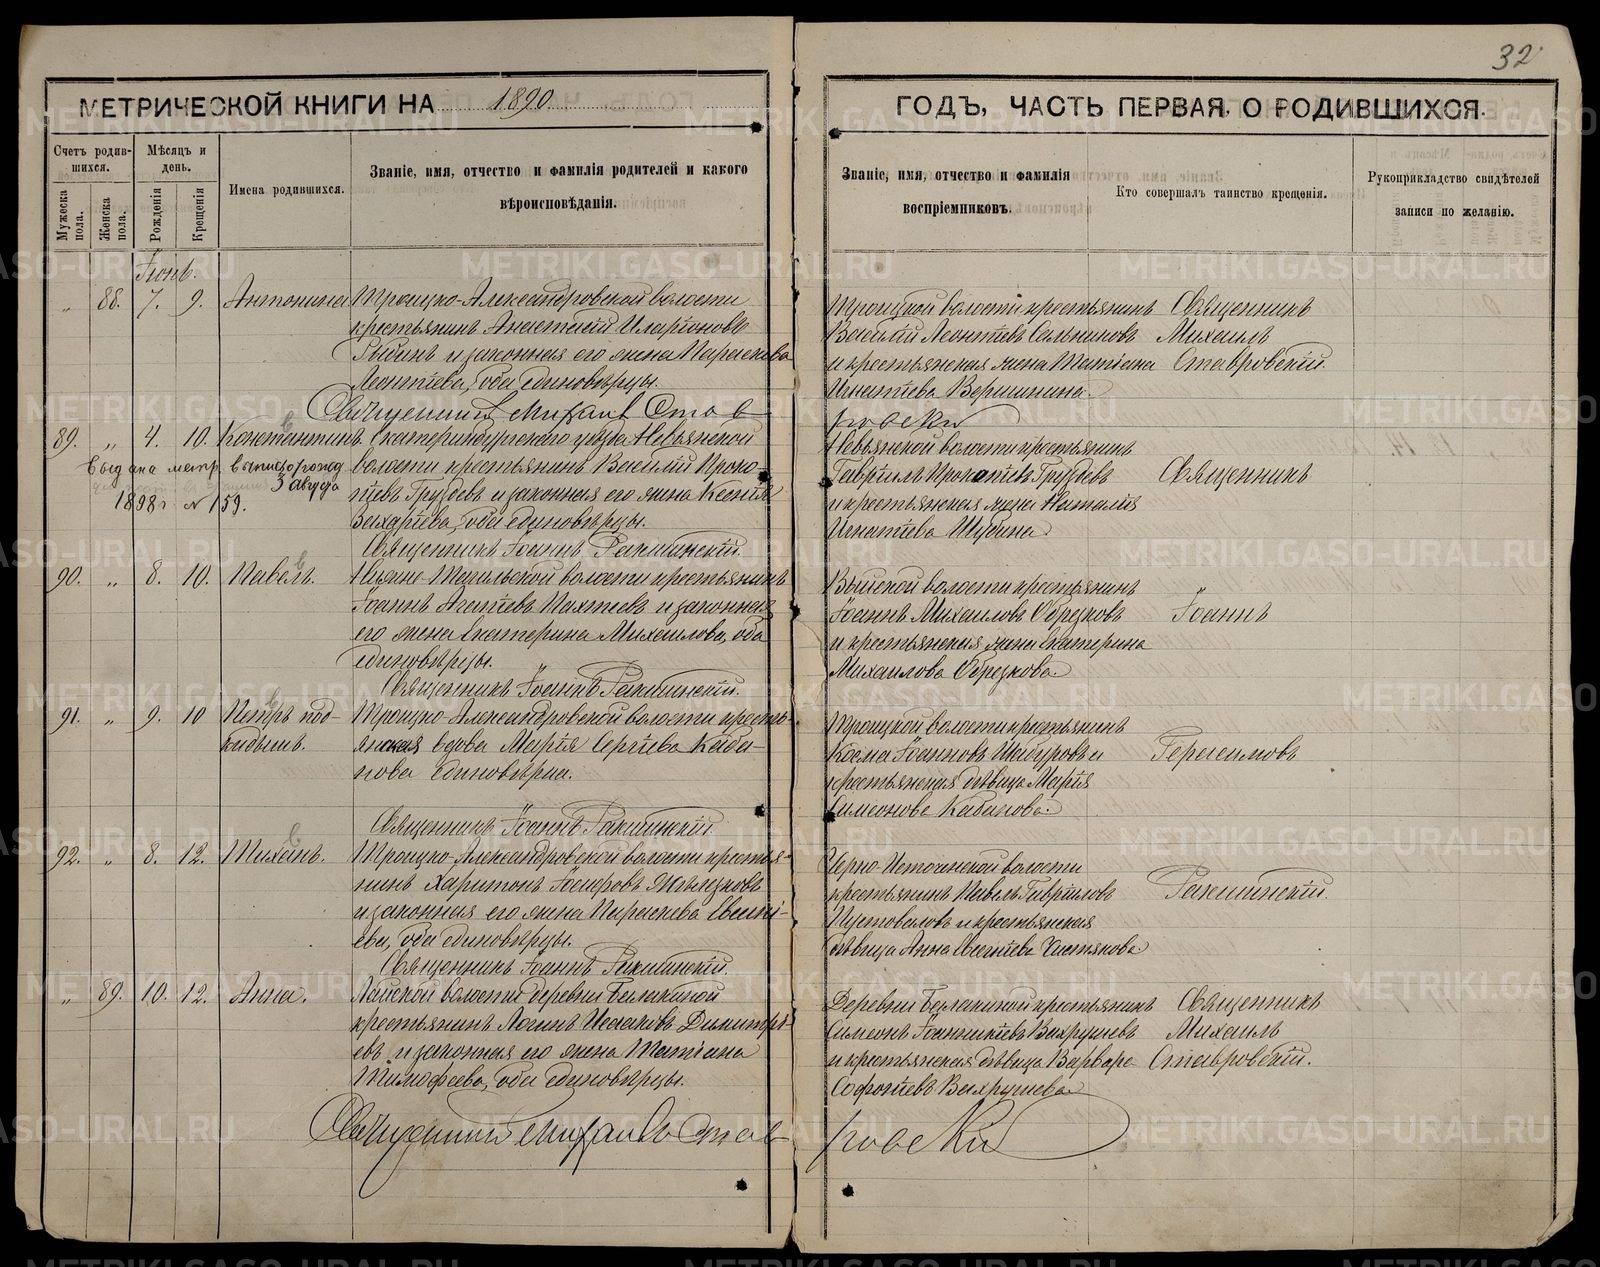 32
МЕТРИЧЕСКОЙ КНИГИ НА 1890
ГОДЪ, ЧАСТЬ ПЕРВАЯ, О РОДИВШИХСЯ.
Счетъ родив-
шихся.
Мужеска
пола.
Женска
пола.
Мѣсяцъ и
день.
Рожденія
Крещенія
Имена родившихся.
Званіе, имя, отчество и фамилія родителей и какого
вѣроисповѣданія.
Званіе, имя, отчество и фамилія
воспріемниковъ.
Кто совершалъ таинство крещенія.
Рукоприкладство свидѣтелей
записи по желанію.
Іюнь.
„ 88. 7. 9. Антонина
Троицко-Александровской волости
крестьянинъ Анастасій Иларіоновъ
Рыбинъ и законная его жена Параскева
Леонтіева, оба единовѣрцы.
Троицкой волости крестьянинъ
Василій Леонтіевъ Сальниковъ
и крестьянская жена Татіана
Игнатіева Вершинина.
Священникъ
Михаилъ
Ставровскій.
Священникъ Михаилъ Ставровскій
89. „ 4. 10. Константинъ
Выдана метр. выпись о рожд.
3 августа
1898 г. № 159.
Екатеринбургскаго уѣзда Невьянской
волости крестьянинъ Василій Проко-
піевъ Груздевъ и законная его жена Ксенія
Захаріева, оба единовѣрцы.
Священникъ Іоаннъ Ракшинскій.
Невьянской волости крестьянинъ
Гавріилъ Прокопіевъ Груздевъ
и крестьянская жена Наталія
Игнатіева Шубина.
Священникъ
90. „ 8. 10. Павелъ.
Нижне-Тагильской волости крестьянинъ
Іоаннъ Агапіевъ Пахтеевъ и законная
его жена Екатерина Михаилова, оба
единовѣрцы.
Священникъ Іоаннъ Ракшинскій.
Выйской волости крестьянинъ
Іоаннъ Михаиловъ Обрезковъ
и крестьянская жена Екатерина
Михаилова Обрезкова.
Іоаннъ
91. „ 9. 10 Петръ под-
кидышъ.
Троицко-Александровской волости кресть-
янская вдова Марія Сергіева Каба-
нова единовѣрка.
Священникъ Іоаннъ Ракшинскій
Троицкой волости крестьянинъ
Косма Іоанновъ Шабуровъ и
крестьянская дѣвица Марія
Симеонова Кабанова.
Герасимовъ
92. „ 8. 12. Тиханъ.
Троицко-Александровской волости крестья-
нинъ Харитонъ Іосифовъ Желѣзковъ
и законная его жена Параскева Евсигні-
ева, оба единовѣрцы.
Священникъ Іоаннъ Ракшинскій.
Черно-Источинской волости
крестьянинъ Павелъ Гавріиловъ
Пустоваловъ и крестьянская
дѣвица Анна Евсигніева Чистякова.
Ракшинскій.
„ 89. 10. 12. Анна.
Лайской волости деревни Белыкиной
крестьянинъ Логинъ Исааковъ Димитрі-
евъ и законная его жена Татіана
Тимофеева, оба единовѣрцы.
Деревни Белыкиной крестьянинъ
Симеонъ Іоанникіевъ Вахрушевъ
и крестьянская дѣвица Варвара
Софоніева Вахрушева.
Священникъ
Михаилъ
Ставровскій.
Священникъ Михаилъ Ставровскій
METRIKI.GASO-URAL.RU